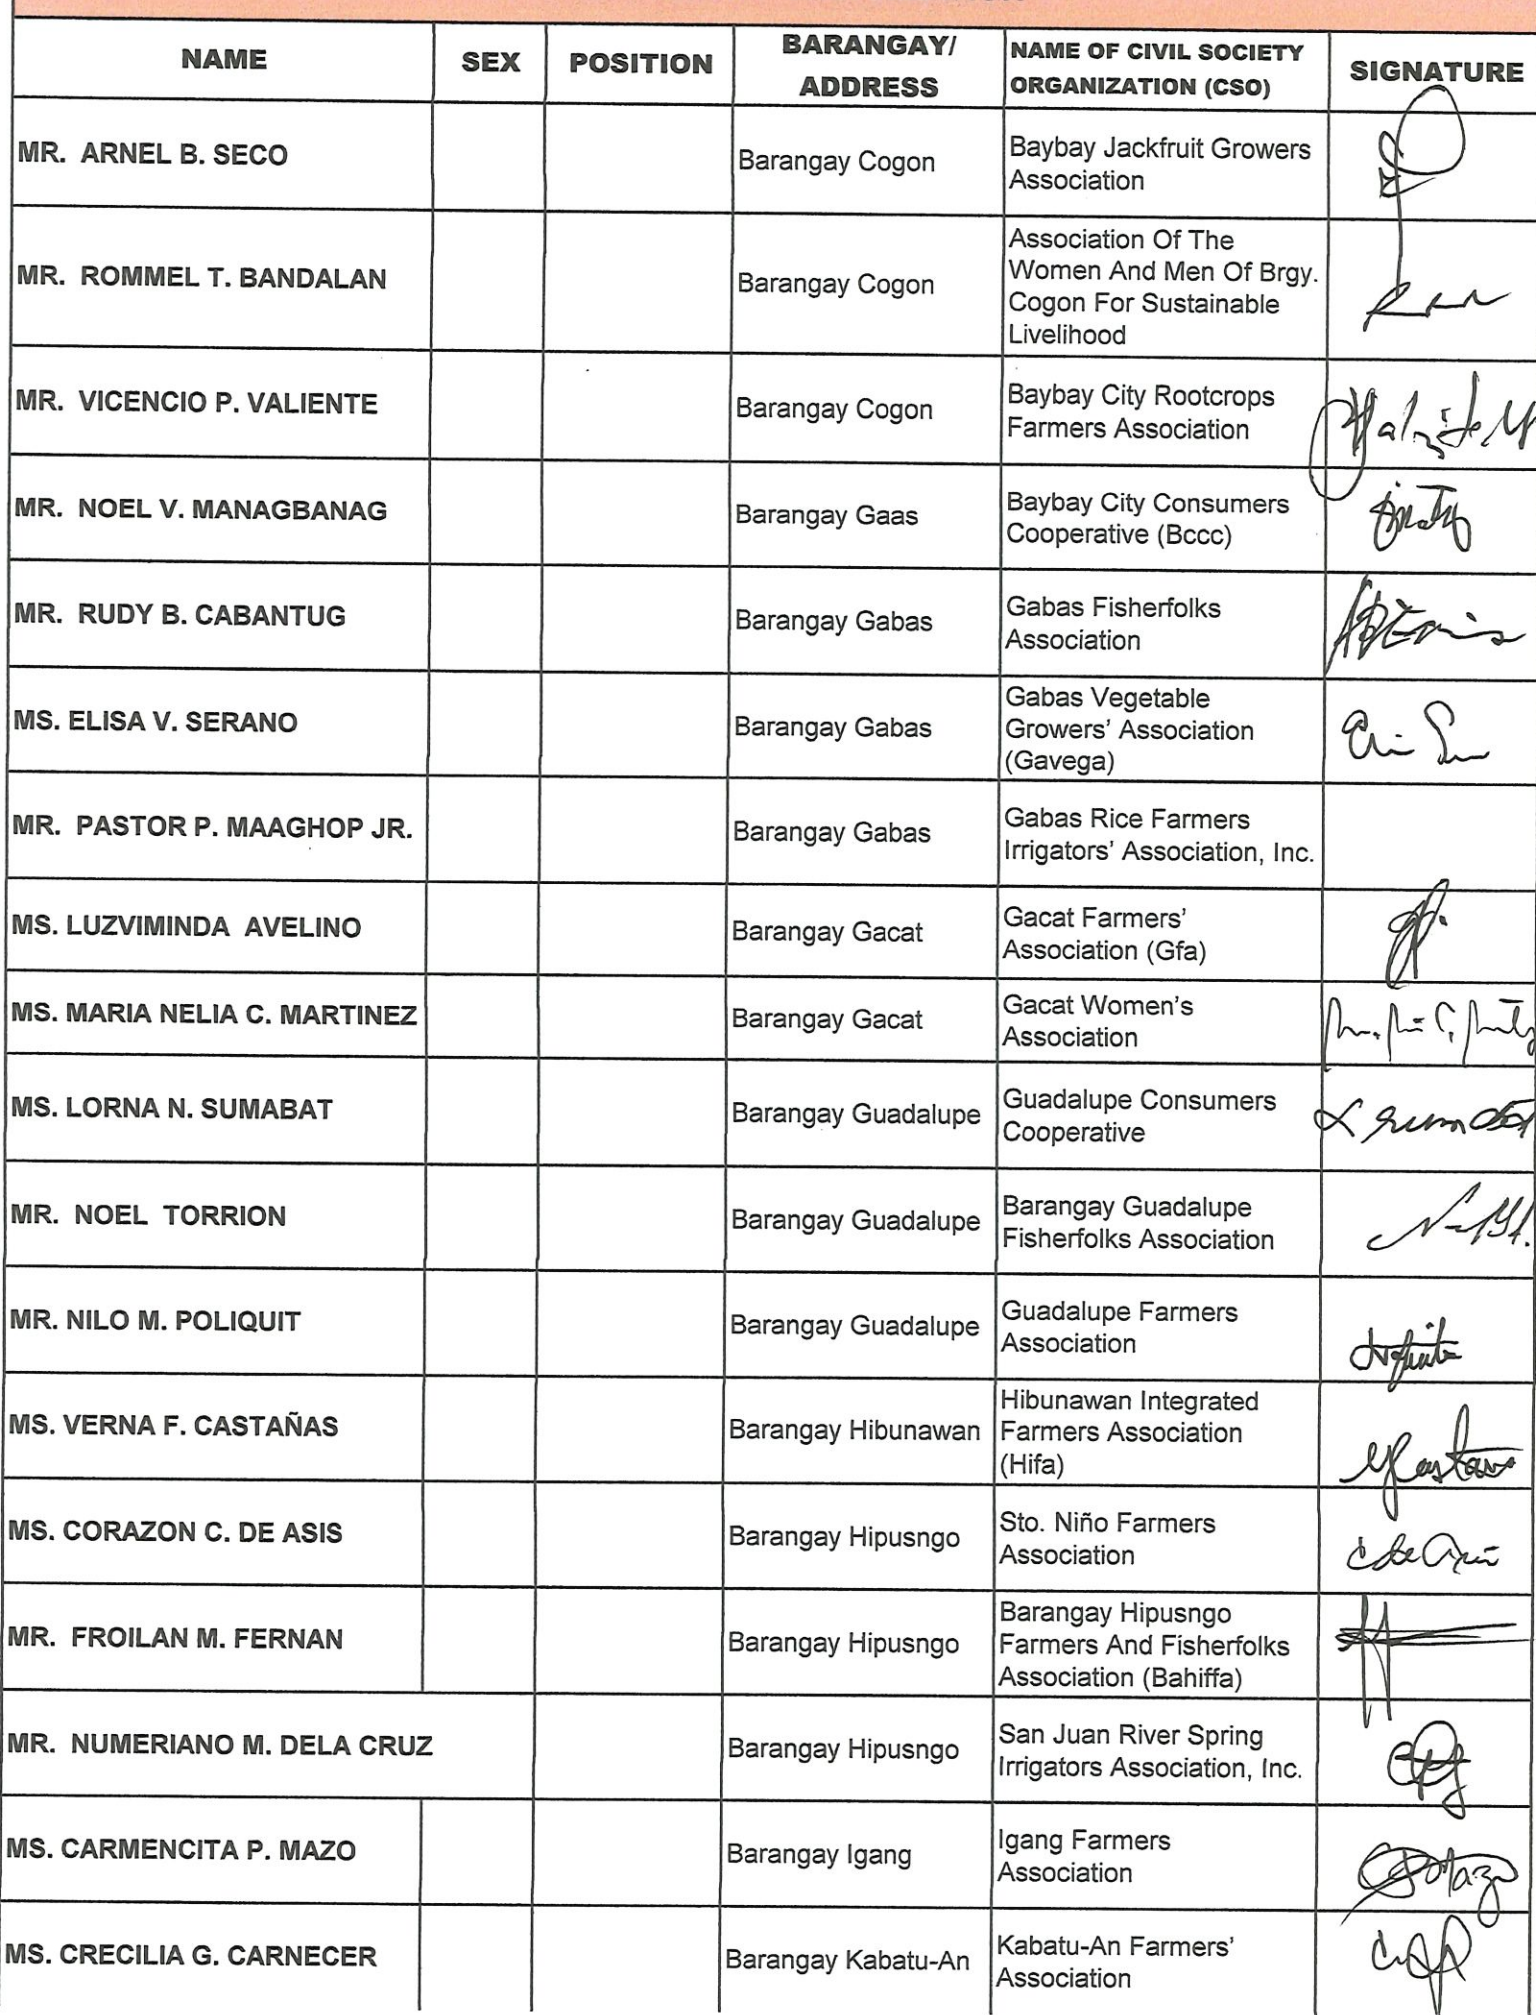 NAME SEX POSITION BARANGAY/ ADDRESS NAME OF CIVIL SOCIETY ORGANIZATION (CSO) SIGNATURE
MR. ARNEL B. SECO Barangay Cogon Baybay Jackfruit Growers
Association
MR. ROMMEL T. BANDALAN Barangay Cogon Association Of The
Women And Men Of Brgy.
Cogon For Sustainable
Livelihood
MR. VICENCIO P. VALIENTE Barangay Cogon Baybay City Rootcrops
Farmers Association
MR. NOEL V. MANAGBANAG Barangay Gaas Baybay City Consumers
Cooperative (Bccc)
MR. RUDY B. CABANTUG Barangay Gabas Gabas Fisherfolks
Association
MS. ELISA V. SERANO Barangay Gabas Gabas Vegetable
Growers' Association
(Gavega)
MR. PASTOR P. MAAGHOP JR. Barangay Gabas Gabas Rice Farmers
Irrigators' Association, Inc.
MS. LUZVIMINDA AVELINO Barangay Gacat Gacat Farmers'
Association (Gfa)
MS. MARIA NELIA C. MARTINEZ Barangay Gacat Gacat Women's
Association
MS. LORNA N. SUMABAT Barangay Guadalupe Guadalupe Consumers
Cooperative
MR. NOEL TORRION Barangay Guadalupe Barangay Guadalupe
Fisherfolks Association
MR. NILO M. POLIQUIT Barangay Guadalupe Guadalupe Farmers
Association
MS. VERNA F. CASTAÑAS Barangay Hibunawan Hibunawan Integrated
Farmers Association
(Hifa)
MS. CORAZON C. DE ASIS Barangay Hipusngo Sto. Niño Farmers
Association
MR. FROILAN M. FERNAN Barangay Hipusngo Barangay Hipusngo
Farmers And Fisherfolks
Association (Bahiffa)
MR. NUMERIANO M. DELA CRUZ Barangay Hipusngo San Juan River Spring
Irrigators Association, Inc.
MS. CARMENCITA P. MAZO Barangay Igang Igang Farmers
Association
MS. CRECILIA G. CARNECER Barangay Kabatu-An Kabatu-An Farmers'
Association